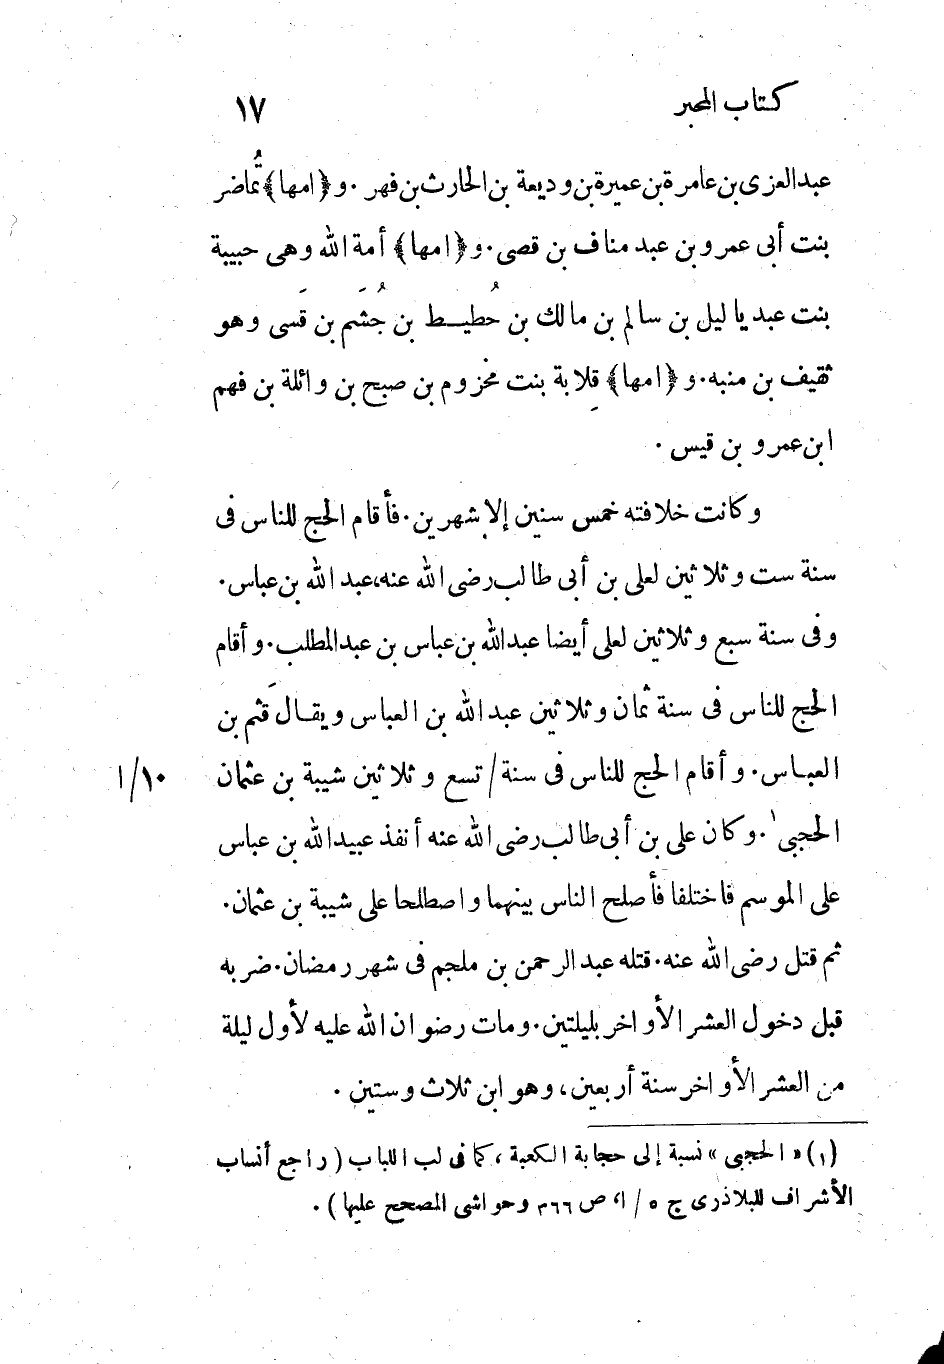 كتاب المحبر
١٧
عبدالعزى بن عامرة بن عميرة بن وديعة بن الحارث بن فهر . و﴿امها﴾ تُماضر
بنت أبى عمرو بن عبد مناف بن قصى . و﴿امها﴾ أمة الله وهى حبيبة
بنت عبد ياليل بن سالم بن مالك بن حُطيـط بن جُشَم بن قَسى وهو
ثقيف بن منبه . و﴿امها﴾ قِلابة بنت مخزوم بن صبح بن وائلة بن فهم
ابن عمرو بن قيس .
وكانت خلافته خمس سنين إلا شهرين . فأقام الحج للناس فى
سنة ست وثلاثين لعلى بن أبى طالب رضى الله عنه، عبد الله بن عباس .
وفى سنة سبع وثلاثين لعلى أيضا عبدالله بن عباس بن عبدالمطلب . وأقام
الحج للناس فى سنة ثمان وثلاثين عبدالله بن العباس ويقال قَثم بن
العباس . وأقام الحج للناس فى سنة / تسع وثلاثين شيبة بن عثمان
١٠/ا
الحجبى ١ . وكان على بن أبى طالب رضى الله عنه أنفذ عبيدالله بن عباس
على الموسم فاختلفا فأصلح الناس بينهما واصطلحا على شيبة بن عثمان .
ثم قتل رضى الله عنه . قتله عبد الرحمن بن ملجم فى شهر رمضان . ضربه
قبل دخول العشر الأواخر بليلتين . ومات رضوان الله عليه لأول ليلة
من العشر الأواخر سنة أربعين، وهو ابن ثلاث وستين .
(١) « الحجبى » نسبة إلى حجابة الكعبة ، كما فى لب اللباب ( راجع أنساب
الأشراف للبلاذرى ج ٥ / ا، ص ٣٦٦ وحواشى المصحح عليها ) .